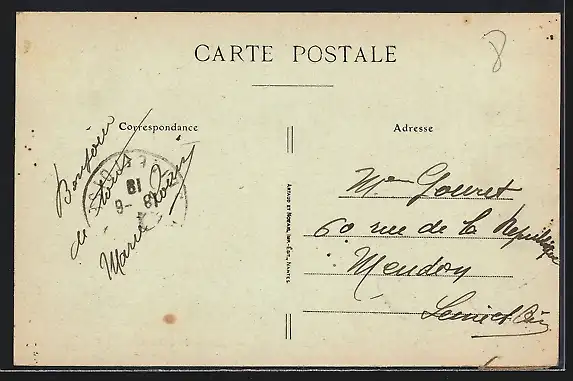 8
CARTE POSTALE
Correspondance
Adresse
Bonjour
de tous
Marie
18
8-
ARTAUD ET NOZAIS, IMP.-ÉDIT., NANTES
Mme Gouret
60 rue de la République
Meudon
Seine et Oise